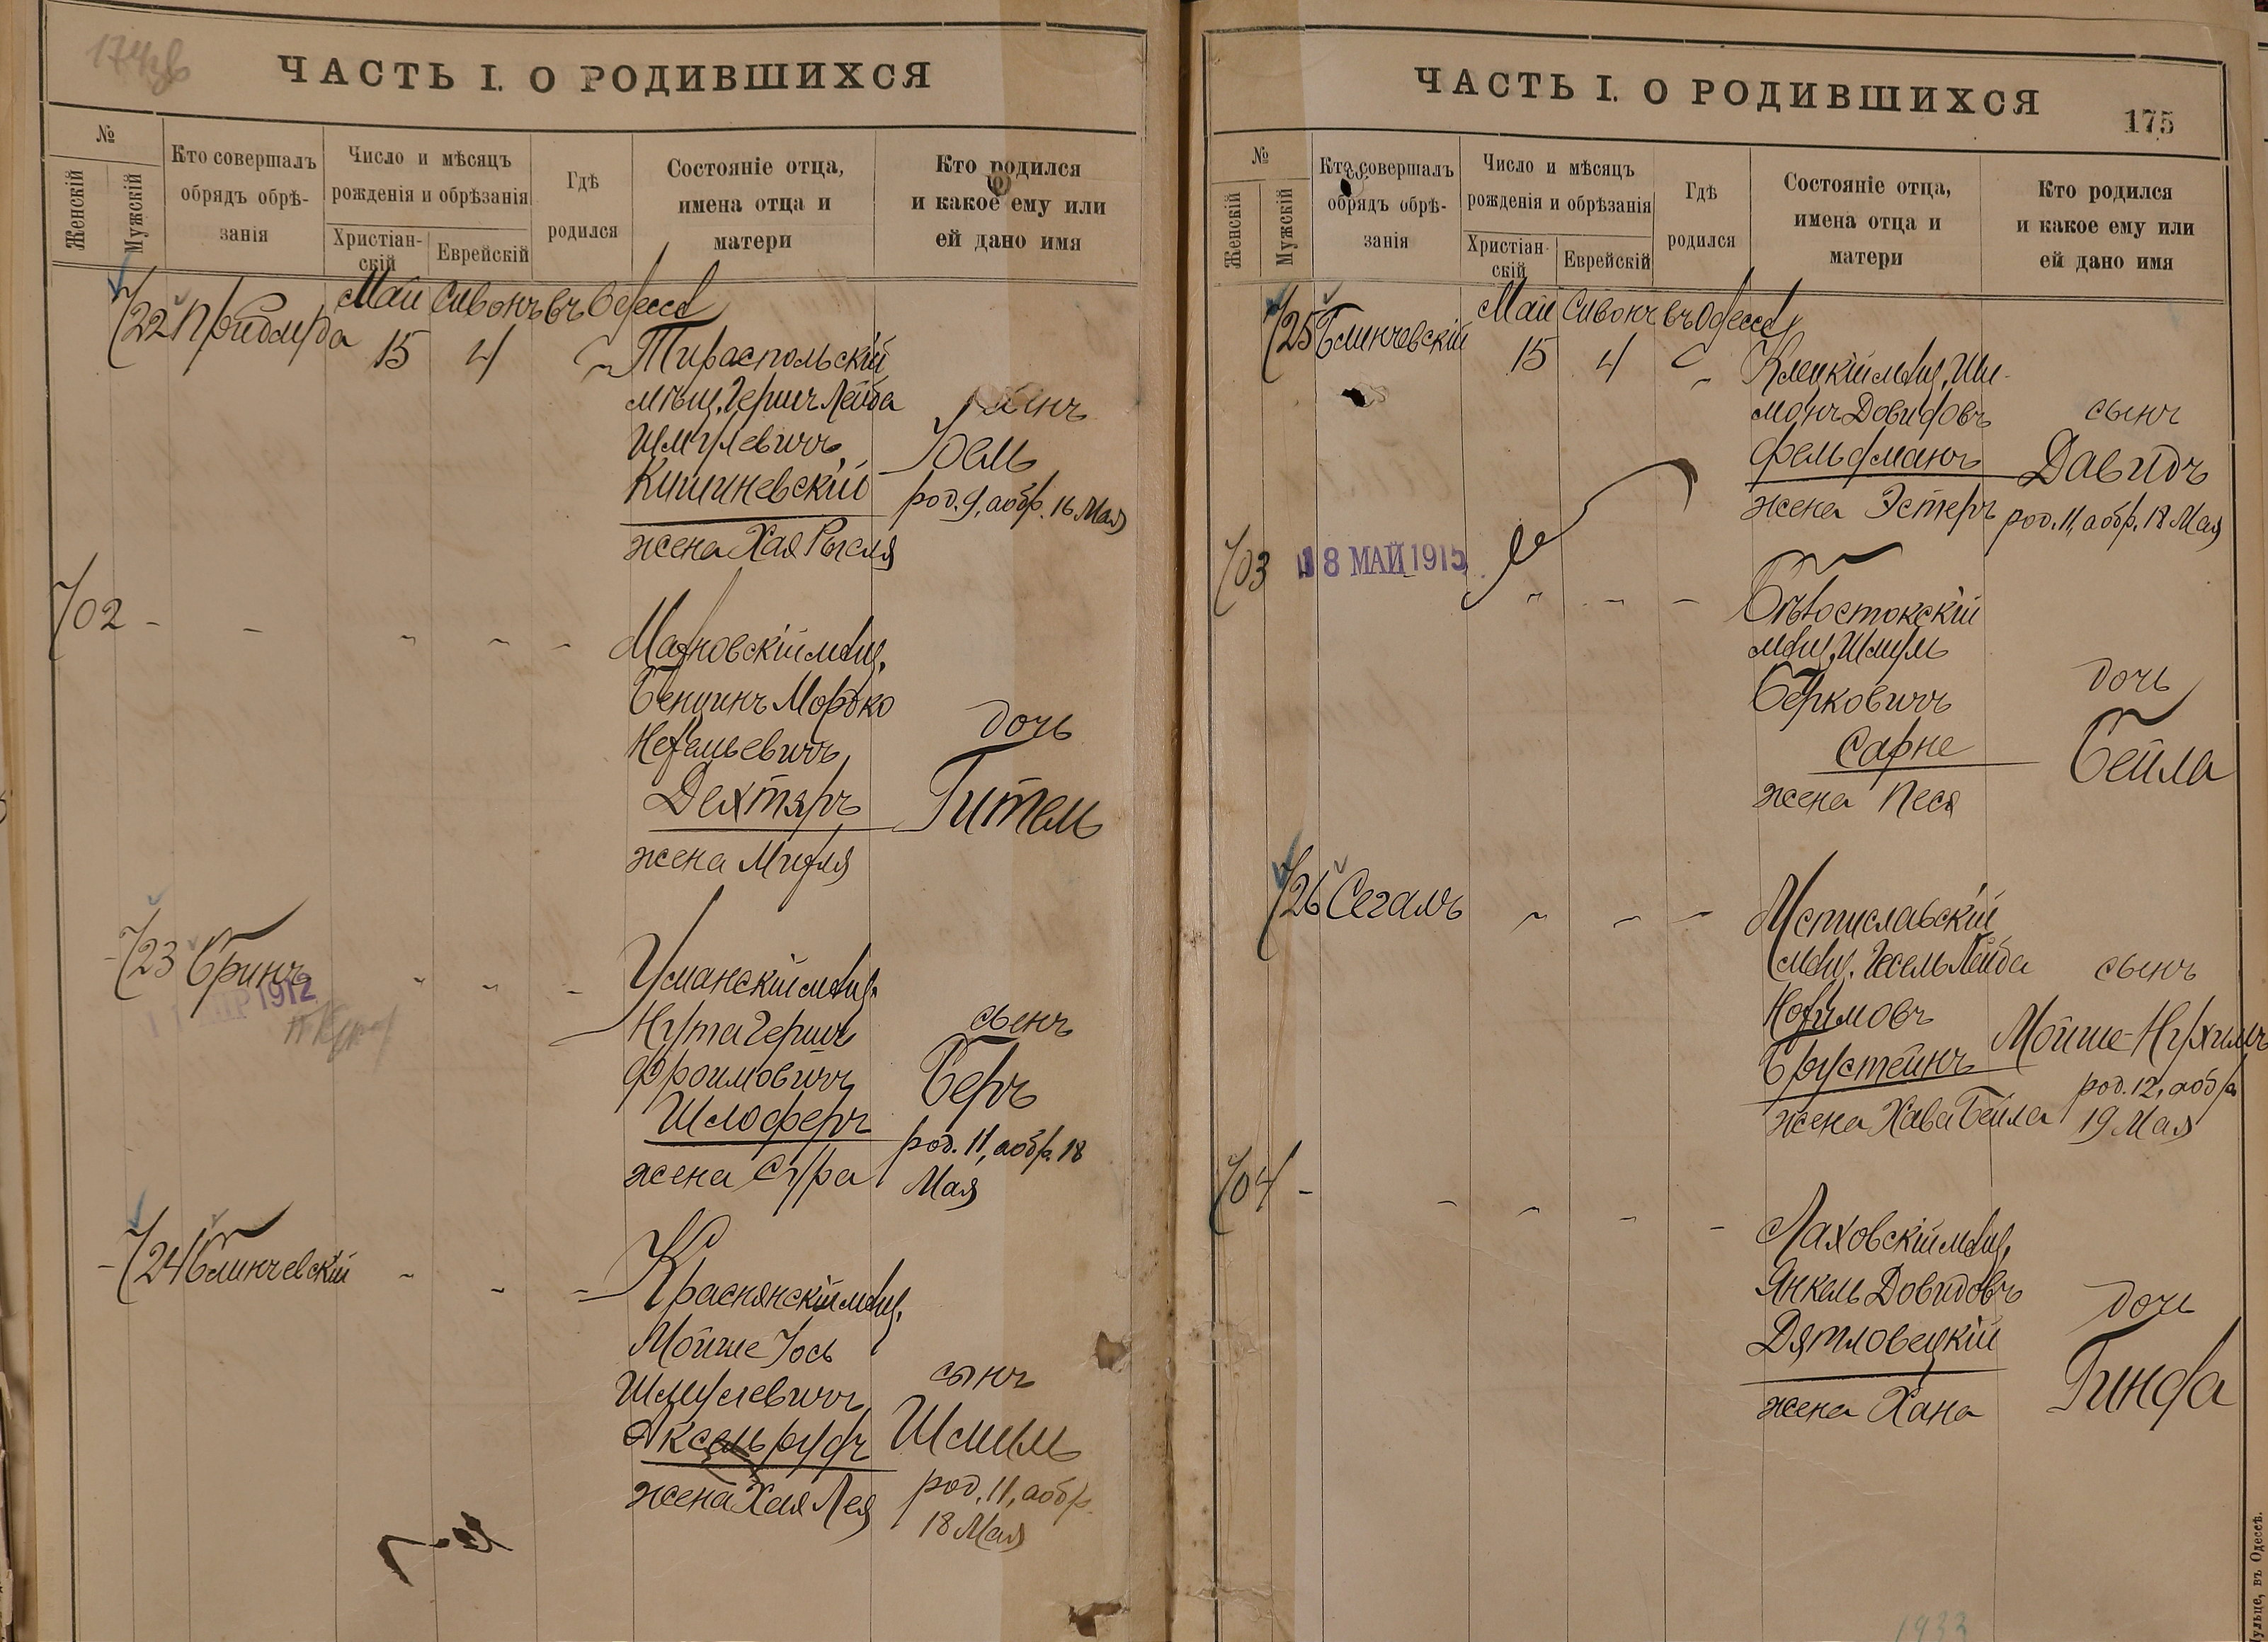 ЧАСТЬ I. О РОДИВШИХСЯ
№
Женскій
Мужскій
Кто совершалъ
обрядъ обрѣ-
занія
Число и мѣсяцъ
рожденія и обрѣзанія
Христіан-
скій
Еврейскій
Гдѣ
родился
Состояніе отца,
имена отца и
матери
Кто родился
и какое ему или
ей дано имя
Май Сивонъ въ Одессѣ
722
15 4
Тираспольскій
мѣщ. Гершъ Лейба
Шмулевичъ
Кишиневскій
жена Хая Рысля
сынъ
Юель
род. 9, а обр. 16 Мая
702
мѣщ.
Бенціинъ Мордко
Дехтяръ
жена
дочь
Гитель
723 Гринъ
1912
Уманскій мѣщ.
Нута Гершъ
Фроимовичъ
Шлоферъ
жена Сура
сынъ
Беръ
род. 11, а обр. 18
Мая
724 Блинчевскій
Краснянскій мѣщ.
Мойше Іось
Шмулевичъ
Аксельрудъ
жена Хая Лея
сынъ
Шмилъ
род. 11, а обр.
18 Мая
ЧАСТЬ I. О РОДИВШИХСЯ
175
№
Женскій
Мужскій
Кто совершалъ
обрядъ обрѣ-
занія
Число и мѣсяцъ
рожденія и обрѣзанія
Христіан-
скій
Еврейскій
Гдѣ
родился
Состояніе отца,
имена отца и
матери
Кто родился
и какое ему или
ей дано имя
Май Сивонъ въ Одессѣ
725 Блинчевскій
15 4
Клецкій мѣщ. Ши-
монъ Довидовъ
Фельдманъ
жена Эстеръ
сынъ
Давидъ
род. 11, а обр. 18 Мая
703
18 МАЙ 1915
Бѣлостокскій
мѣщ. Шмулъ
Берковичъ
Сарне
жена Песя
дочь
Бейла
726 Сегалъ
Мстиславскій
мѣщ. Гесель Лейба
Брустейнъ
жена Хава Бейла
сынъ
Мойше-Нухимъ
род. 12, а обр.
19 Мая
704
Ляховскій мѣщ.
Янкель Довидовъ
Дятловецкій
жена Хана
дочь
Гинда
1933
въ Одессѣ.